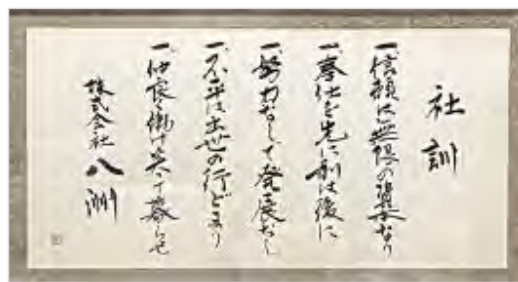 社訓
一、信頼は無限の資本なり
一、奉仕を先に利は後に
一、努力なくして発展なし
一、不平は出世の行どまり
一、仲良く働け笑って暮らせ
株式会社 八洲